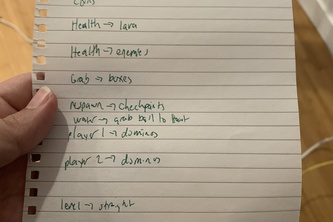 coins
Health → lava
Health → enemies
Grab → boxes
respawn → checkpoints
water → grab ball to
player 1 → dominos
player 2 → dominos
level → straight